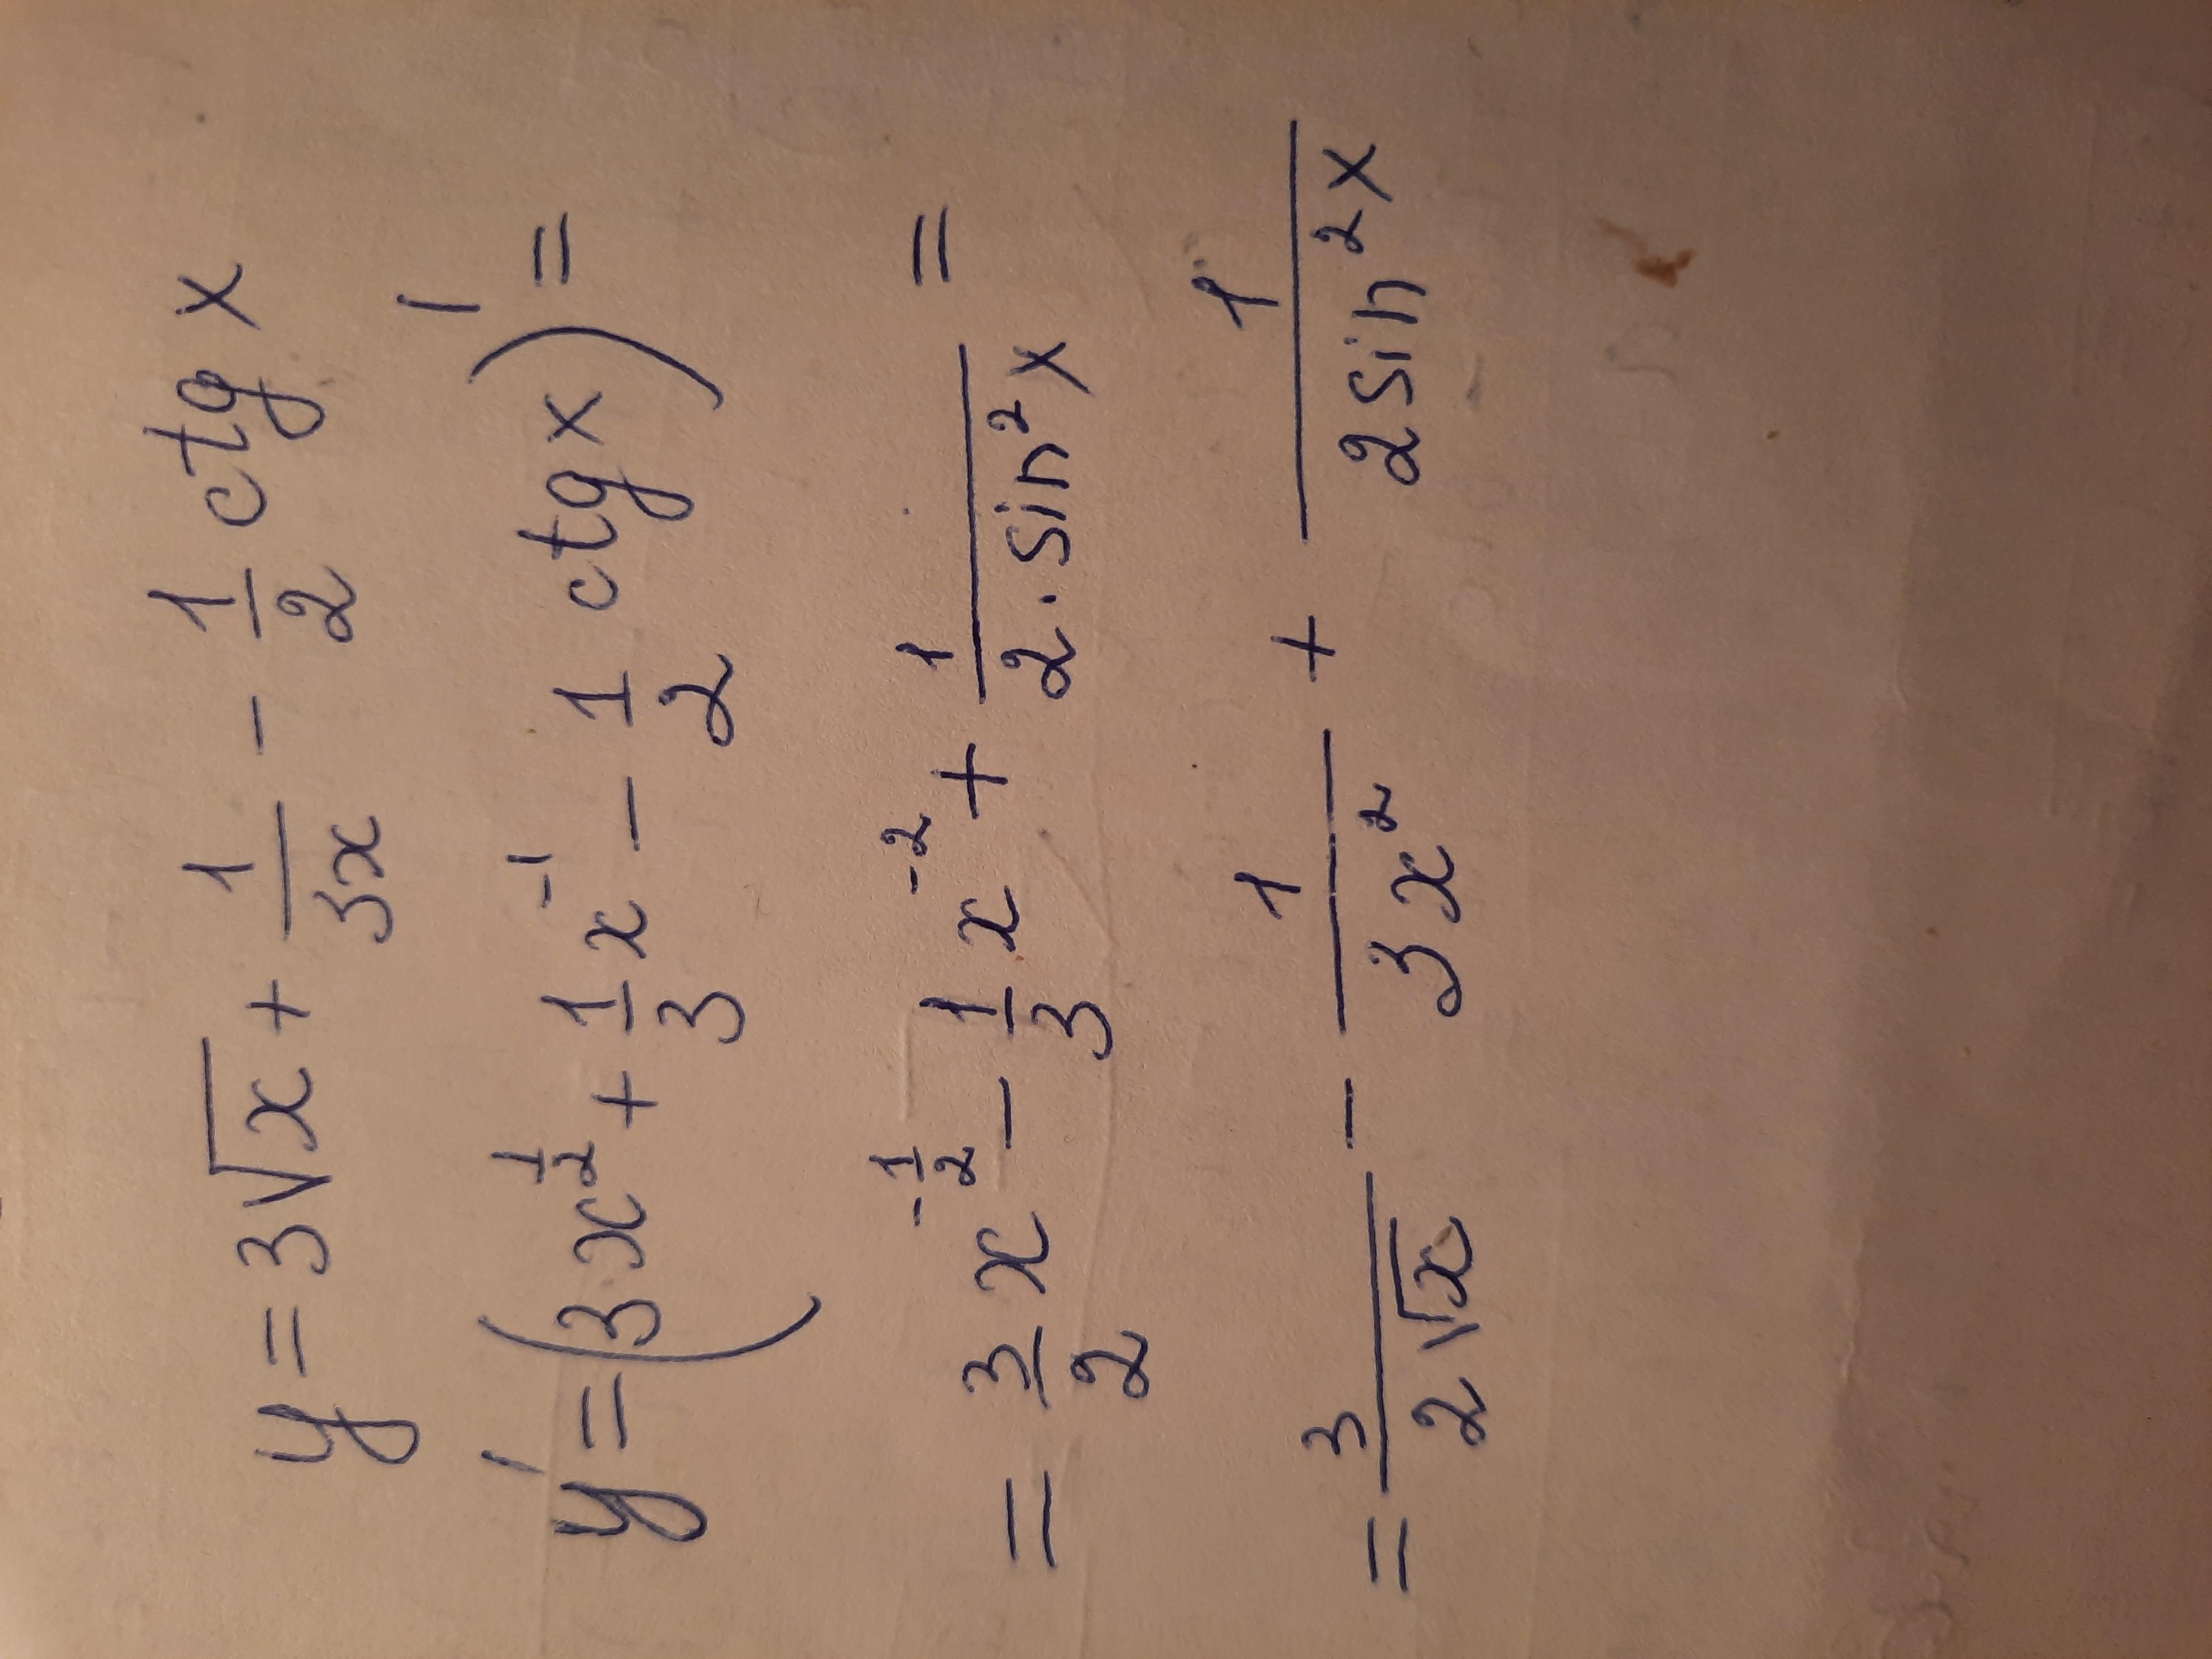 y = 3√x + 1/(3x) - 1/2 ctg x
y' = (3x^(1/2) + 1/3 x^(-1) - 1/2 ctg x)' =
= 3/2 x^(-1/2) - 1/3 x^(-2) + 1/(2·sin²x) =
= 3/(2√x) - 1/(3x²) + 1/(2sin²x)